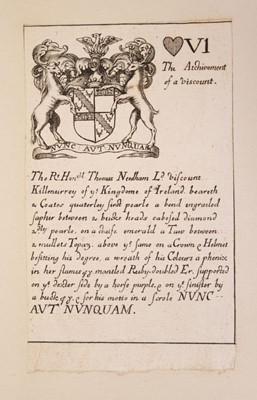 VI
The Atchivement
of a viscount.
NVNC AVT NVNQUAM
The Rt. Honble Thomas Needham Ld. Viscount
Killmurrey of ye Kingdome of Ireland. beareth
2 Coates quaterley first pearle a bend engrailed
sapher between 2 bucks heads cabosed diamond
2dly pearle, on a chase emerald a Taw between
2 mullets Topaz. above ye same on a Crown & Helmet
befitting his degree, a wreath of his Colours a phenix
in her flames mantled Ruby doubled Er. supported
on ye dexter side by a horse purple, & on ye sinister by
a buck & for his motto in a scrole NVNC
AVT NVNQUAM.